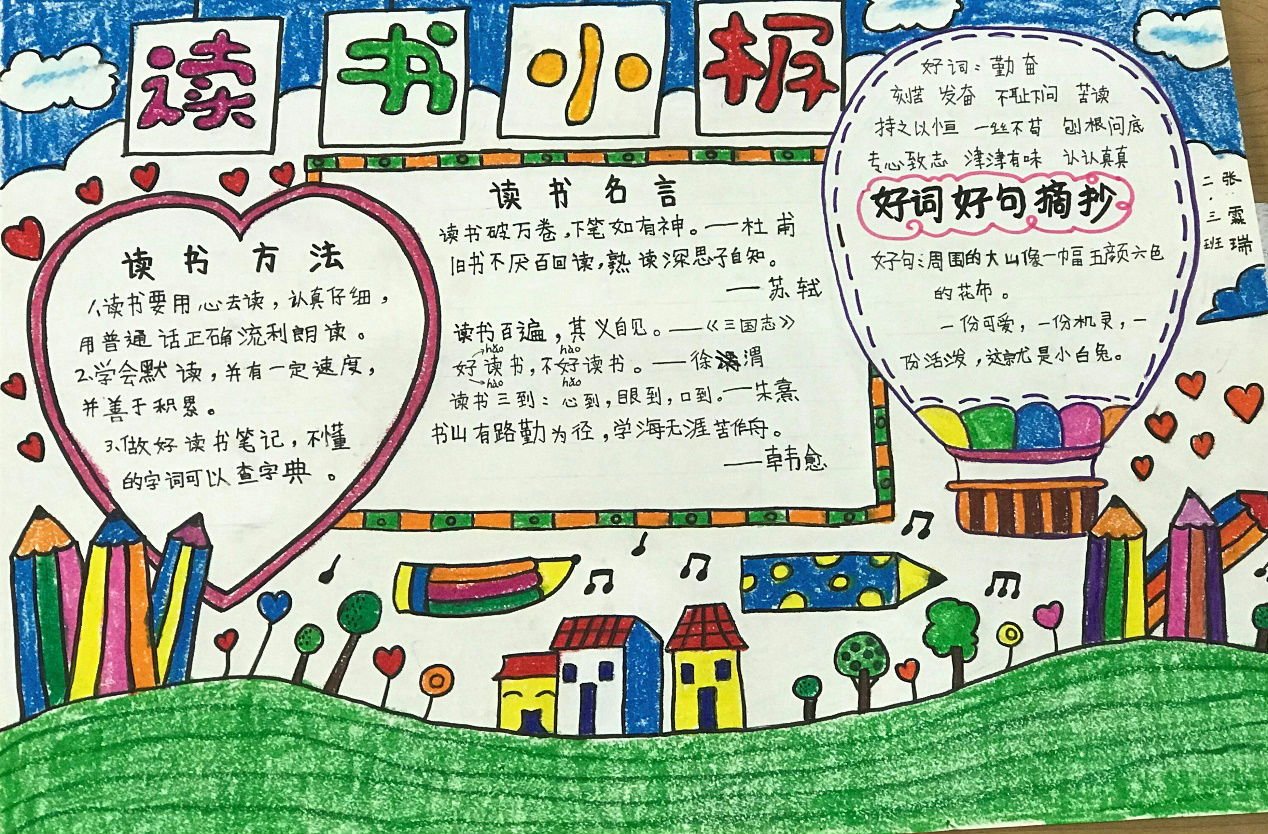 读书小报
读书方法
1、读书要用心去读，认真仔细，
用普通话正确流利朗读。
2、学会默读，并有一定速度，
并善于积累。
3、做好读书笔记，不懂
的字词可以查字典。
读书名言
读书破万卷，下笔如有神。——杜甫
旧书不厌百回读，熟读深思子自知。
——苏轼
读书百遍，其义自见。——《三国志》
hǎo hào
好读书，不好读书。——徐渭
hào hǎo
读书三到：心到，眼到，口到。——朱熹
书山有路勤为径，学海无涯苦作舟。
——韩愈
好词：勤奋
刻苦 发奋 不耻下问 苦读
持之以恒 一丝不苟 刨根问底
专心致志 津津有味 认认真真
好词好句摘抄
好句：周围的大山像一幅五颜六色
的花布。
一份可爱，一份机灵，一
份活泼，这就是小白兔。
二·三班
张霖瑞